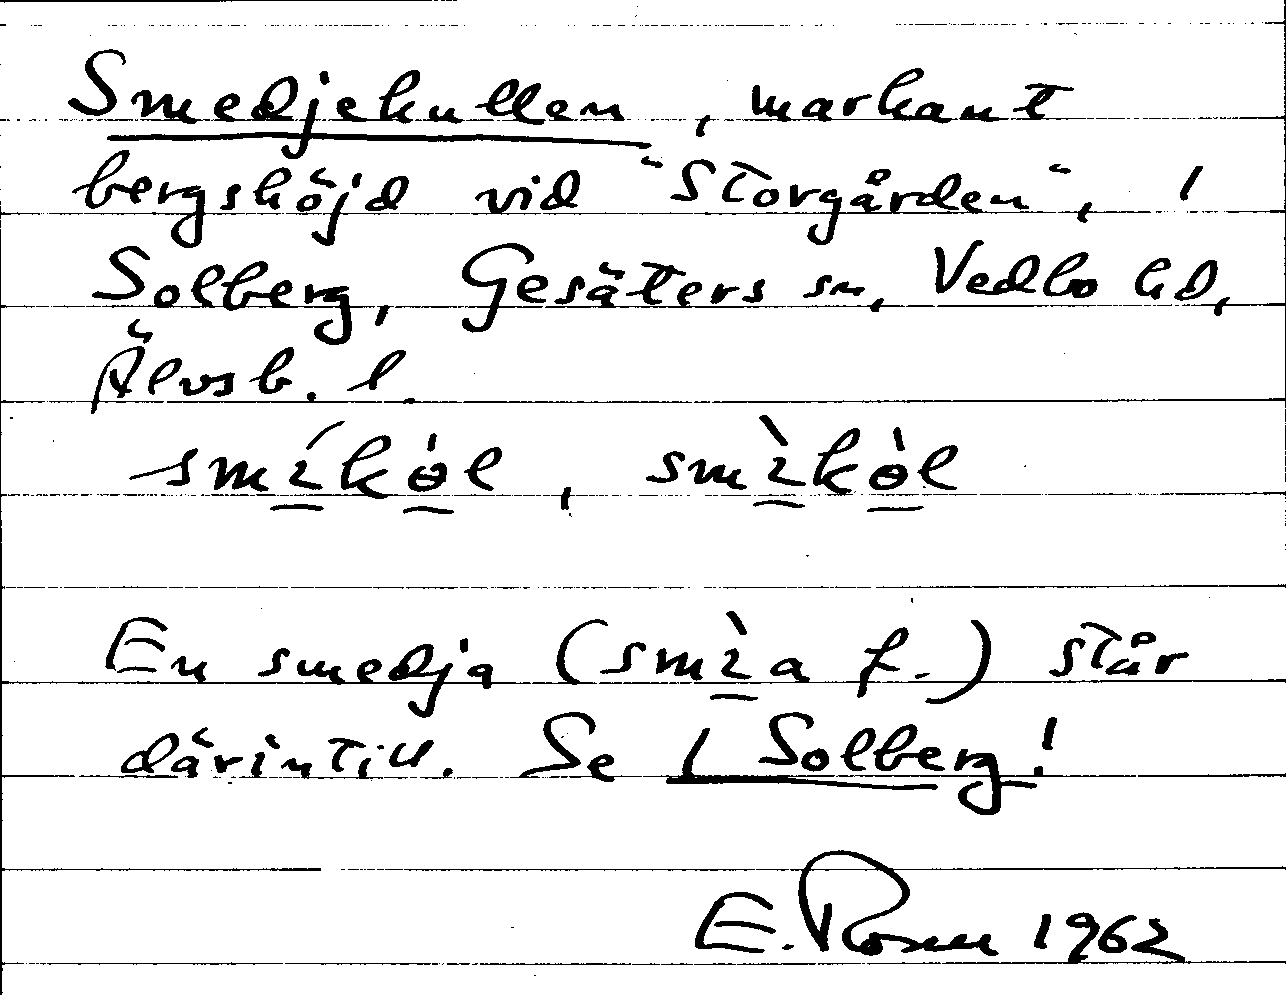 Smedjekullen, markant
bergshöjd vid "Storgården", 1
Solberg, Gesäters sn, Vedbo hd,
Älvsb. l.
smíkɵ̀l, smìkɵ̀l
En smedja (smìa f.) står
därintill. Se 1 Solberg!
E. 1962